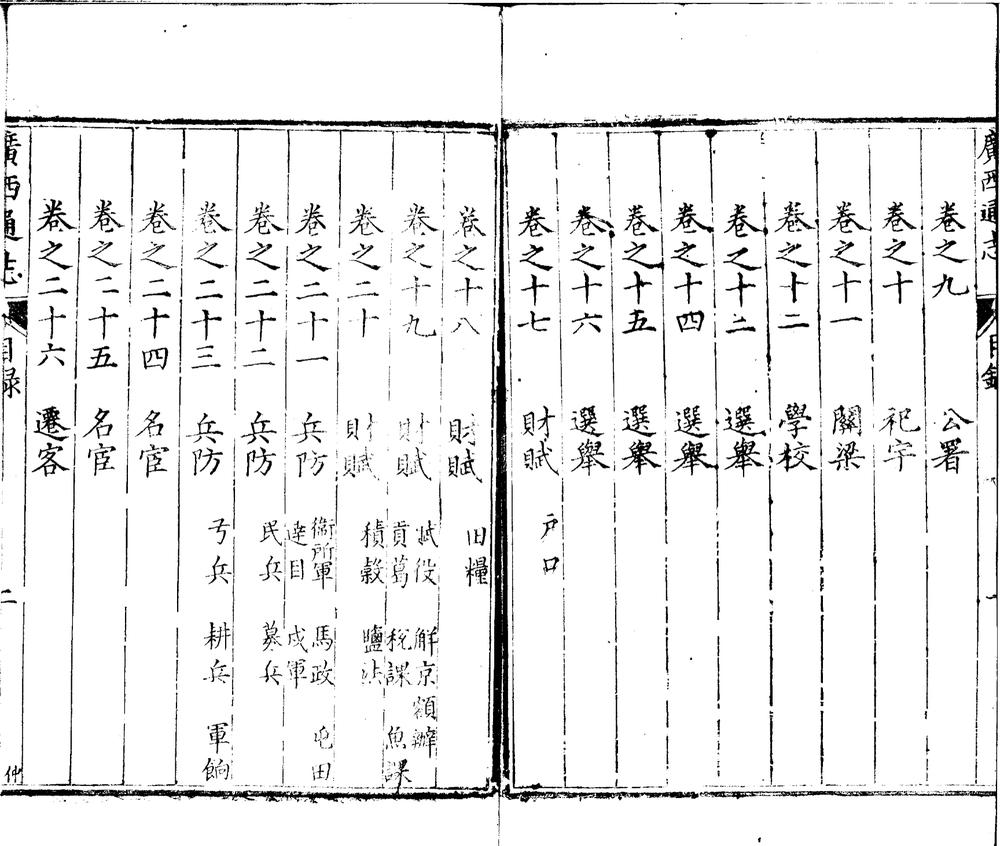 廣西通志 目錄 一
卷之九 公署
卷之十 祀宇
卷之十一 關梁
卷之十二 學校
卷之十三 選舉
卷之十四 選舉
卷之十五 選舉
卷之十六 選舉
卷之十七 財賦 戶口
卷之十八 財賦 田糧
卷之十九 財賦 賦役 解京額辦
貢葛 稅課 魚課
卷之二十 財賦 積穀 鹽法
卷之二十一 兵防 衞所軍 馬政 屯田
達目 戍軍
卷之二十二 兵防 民兵 募兵
卷之二十三 兵防 弓兵 耕兵 軍餉
卷之二十四 名宦
卷之二十五 名宦
卷之二十六 遷客
廣西通志 目録 二 仲